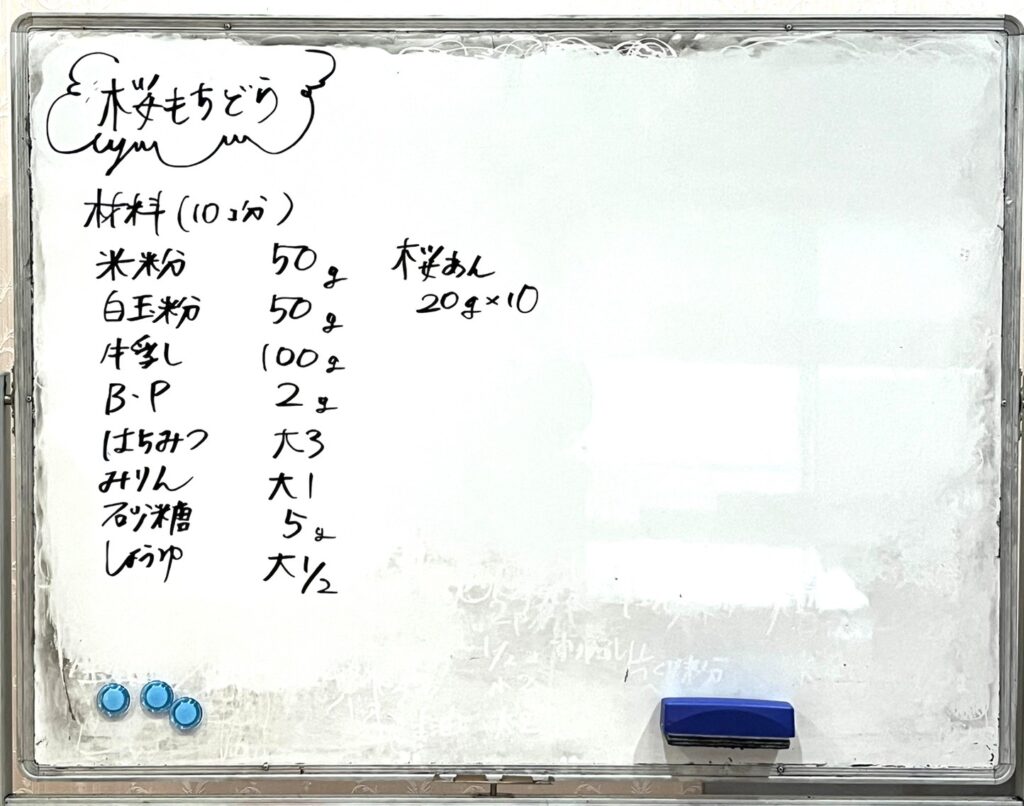 桜もちどら
材料(10コ分)
米粉 50g
白玉粉 50g
牛乳し 100g
B・P 2g
はちみつ 大3
みりん 大1
砂糖 5g
しょうゆ 大1/2
桜あん
20g×10